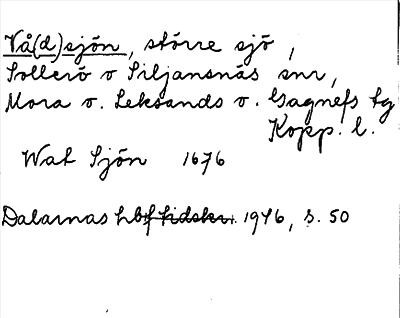 Vå(d)sjön, större sjö,
Sollerö o Siljansnäs snr,
Mora o. Leksands o. Gagnefs tg
Kopp. l.
Wat Sjön 1676
Dalarnas hbf tidskr. 1946, s. 50